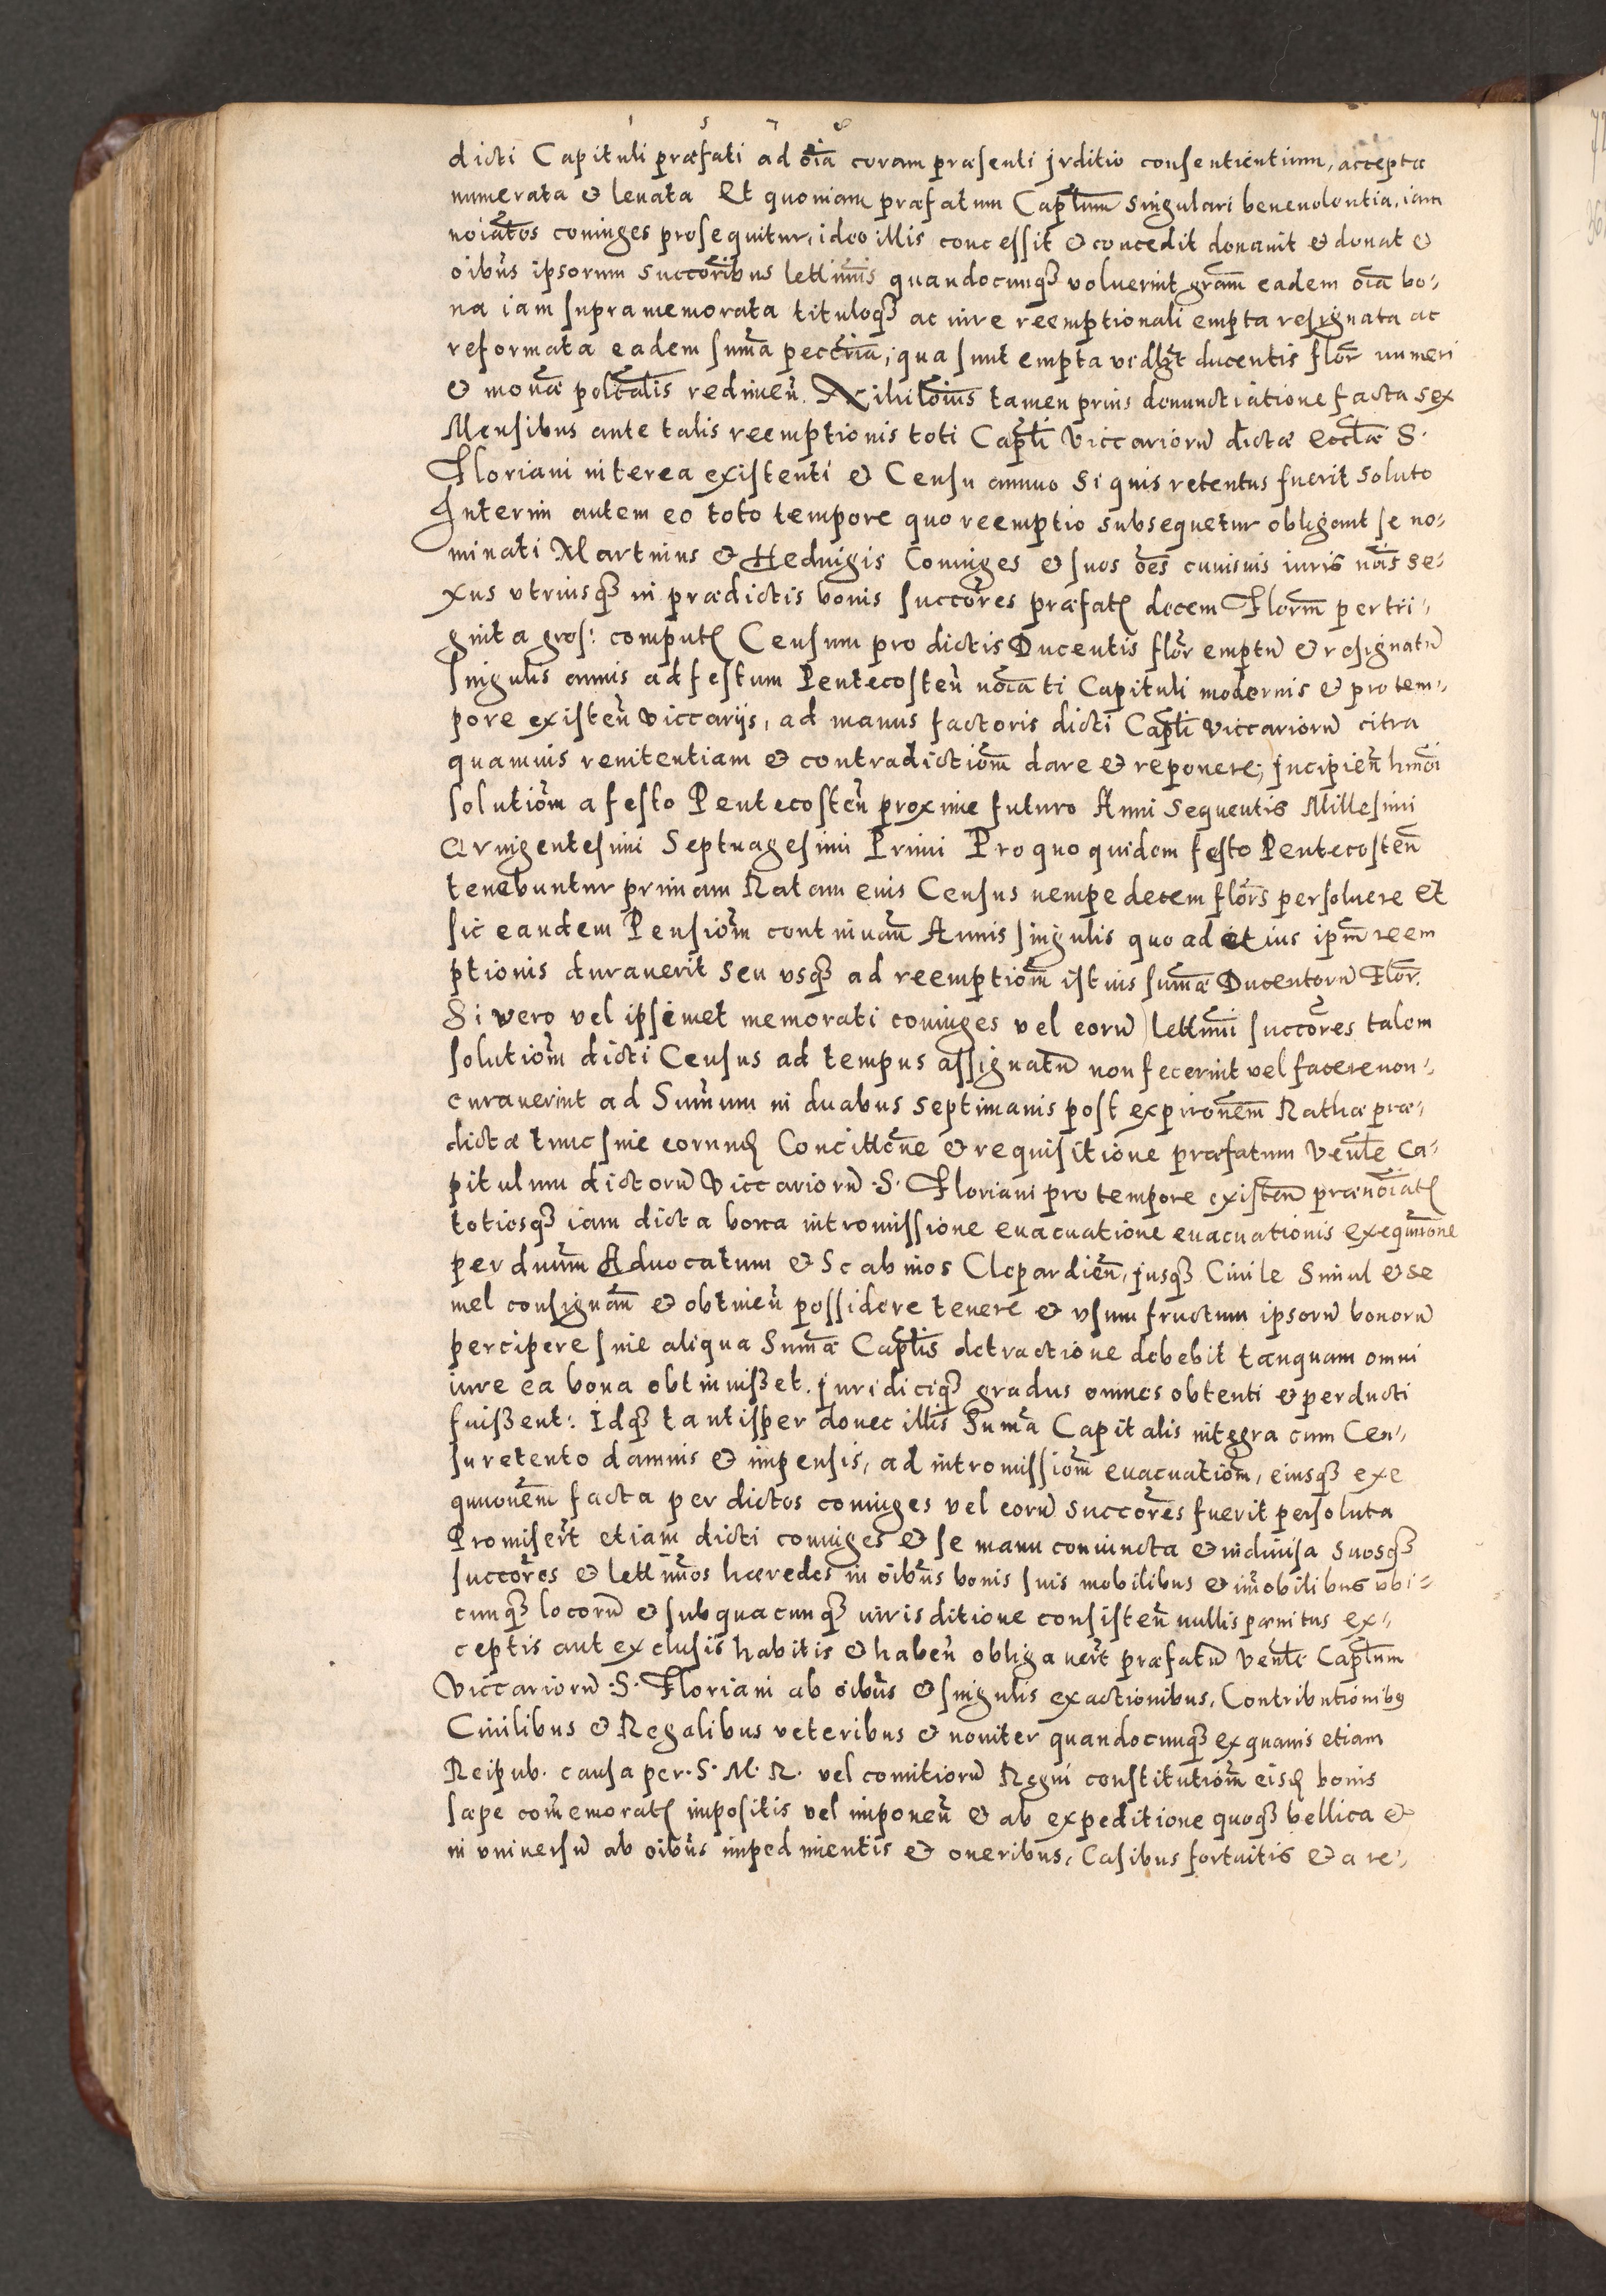 dicti Capituli præfati ad oîa coram præsenti Jvditio consentientium, accepta
numerata & leuata Et quoniam præfatum Caplûm singulari beneuolentia, iam
noiâtos coniuges prosequitur, ideo illis concessit & concedit donauit & donat &
oibûs ipsorum succorîbus lettimîs quandocunqꝫ voluerint grâm eadem oîa bo-
na iam supra memorata tituloqꝫ ac iure reemptionali empta resignata ac
reformata eadem sum̃a peccñia, qua sunt empta vidlȝt ducentis flor̃ numeri
& monæ̃ polcâlis redimeñ. Nihilom̃ius tamen prius denunctiatione facta sex
Mensibus ante talis reemptionis toti Caplĩ Viccariorũ dictæ Ecclæ̃ S.
Floriani interea existenti & Censu annuo Si quis retentus fuerit soluto
Interim autem eo toto tempore quo reemptio subsequetur obligant se no-
minati Martinus & Heduigis Coniuges & suos oẽs cuiusuis iuris nõis se-
xus vtriusqꝫ in prædictis bonis succõres præfatꝭ decem Florm̃ per tri-
ginta gros: computꝭ Censum pro dictis Ducentis flor̃ emptũ & resignatũ
singulis annis ad festum Pentecosteñ noĩati Capituli modernis & pro tem-
pore existeñ Viccarijs, ad manus factoris dicti Caplĩ Viccariorũ citra
quamuis renitentiam & contradictiom̃ dare & reponere, Jncipieñ hmõi
solutiom̃ a festo Pentecosteñ proxime futuro Anni sequentis Millesimi
Qvingentesimi Septuagesimi Primi Pro quo quidem festo Pentecosteñ
tenebuntur primam Ratam euis Census nempe decem flors̃ persoluere et
sic eandem Pensiom̃ continuañ Annis singulis quoad et ius ipm̃ reem
ptionis durauerit seu vsqꝫ ad reemptiom̃ istius sum̃æ Ducentorũ Flor̃.
Si vero vel ipsimet memorati coniuges vel eorũ lettimĩ succõres talem
solutiom̃ dicti Census ad tempus assignatũ non fecerint vel facere non-
curauerint ad Sum̃um in duabus septimanis post expironẽm Rathæ præ-
dictæ tunc sine eorundꝭ Concittõne & requisitione præfatum Venlẽ Ca-
pitulum dictorũ Viccariorũ .S. Floriani pro tempore existeñ prænoĩatꝭ
totiesqꝫ iam dicta bona intromissione euacuatione euacuationis exequuiõne
per duum̃ Aduocatum & Scabinos Clepardieñ, jusqꝫ Ciuile Simul & se
mel consignañ & obtineñ possidere tenere & vsum fructum ipsorũ bonorũ
percipere sine aliqua Sum̃æ Captlĩs detractione debebit tanquam omni
iure ea bona obtinuißet. Juridiciqꝫ gradus omnes obtenti & perducti
fuißent: Idqꝫ tantisper donec illis Sum̃a Capitalis integra cum Cen-
su retento damnis & impensis, ad intromissiom̃ euacuatiom̃, eiusqꝫ exe
quuonẽm facta per dictos coniuges vel eorũ succõres fuerit persoluta
Promisert̃ etiam dicti coniuges & se manu coniuncta & indiuisa suosqꝫ
succõres & lettimõs hæredes in oibũs bonis suis mobilibus & im̃obilibus vbi-
cunqꝫ locorũ & sub quacunqꝫ iurisditione consisteñ nullis pænitus ex-
ceptis aut exclusis habitis & habeñ obligauert̃ præfatũ Venlẽ Caplũm
Viccariorũ .S. Floriani ab oibũs & singulis exactionibus, Contributionibꝰ
Ciuilibus & Regalibus veteribus & nouiter quandocunqꝫ ex quauis etiam
Reipub. causa per .S. M. R. vel comitiorũ Regni constitutiom̃ eisdꝭ bonis
sæpe com̃emoratꝭ impositis vel imponeñ & ab expeditione quoqꝫ bellica &
in vniuersũ ab oibũs impedimentis & oneribus, Casibus fortuitis & a re-